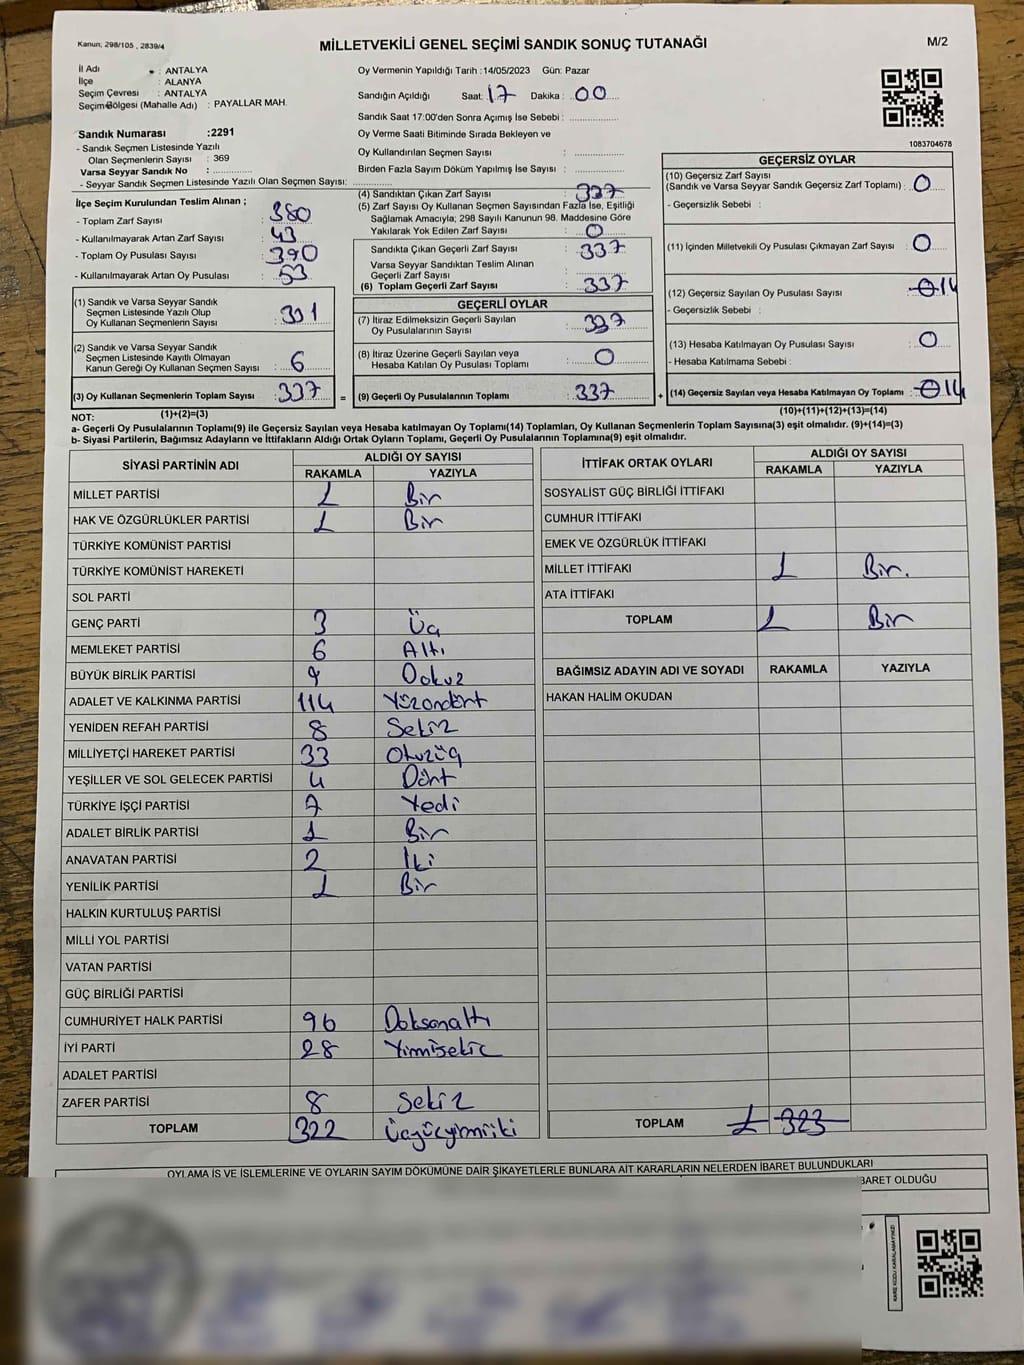 Kanun; 298/105 , 2839/4
MİLLETVEKİLİ GENEL SEÇİMİ SANDIK SONUÇ TUTANAĞI
M/2
İl Adı : ANTALYA
İlçe : ALANYA
Seçim Çevresi : ANTALYA
Seçim Bölgesi (Mahalle Adı) : PAYALLAR MAH.
Oy Vermenin Yapıldığı Tarih :14/05/2023 Gün: Pazar
Sandığın Açıldığı Saat: 17 Dakika : 00
Sandık Saat 17:00'den Sonra Açımış İse Sebebi :
Oy Verme Saati Bitiminde Sırada Bekleyen ve
Oy Kullandırılan Seçmen Sayısı :
Birden Fazla Sayım Döküm Yapılmış İse Sayısı :
1083704678
Sandık Numarası :2291
- Sandık Seçmen Listesinde Yazılı
Olan Seçmenlerin Sayısı : 369
Varsa Seyyar Sandık No :
- Seyyar Sandık Seçmen Listesinde Yazılı Olan Seçmen Sayısı:
İlçe Seçim Kurulundan Teslim Alınan ;
- Toplam Zarf Sayısı : 380
- Kullanılmayarak Artan Zarf Sayısı : 43
- Toplam Oy Pusulası Sayısı : 390
- Kullanılmayarak Artan Oy Pusulası : 53
(1) Sandık ve Varsa Seyyar Sandık
Seçmen Listesinde Yazılı Olup
Oy Kullanan Seçmenlerin Sayısı : 331
(2) Sandık ve Varsa Seyyar Sandık
Seçmen Listesinde Kayıtlı Olmayan
Kanun Gereği Oy Kullanan Seçmen Sayısı : 6
(3) Oy Kullanan Seçmenlerin Toplam Sayısı : 337
(1)+(2)=(3)
(4) Sandıktan Çıkan Zarf Sayısı : 337
(5) Zarf Sayısı Oy Kullanan Seçmen Sayısından Fazla İse, Eşitliği
Sağlamak Amacıyla; 298 Sayılı Kanunun 98. Maddesine Göre
Yakılarak Yok Edilen Zarf Sayısı : 0
Sandıkta Çıkan Geçerli Zarf Sayısı : 337
Varsa Seyyar Sandıktan Teslim Alınan
Geçerli Zarf Sayısı :
(6) Toplam Geçerli Zarf Sayısı : 337
GEÇERLİ OYLAR
(7) İtiraz Edilmeksizin Geçerli Sayılan
Oy Pusulalarının Sayısı : 337
(8) İtiraz Üzerine Geçerli Sayılan veya
Hesaba Katılan Oy Pusulası Toplamı : 0
= (9) Geçerli Oy Pusulalarının Toplamı : 337 +
GEÇERSİZ OYLAR
(10) Geçersiz Zarf Sayısı
(Sandık ve Varsa Seyyar Sandık Geçersiz Zarf Toplamı) : 0
- Geçersizlik Sebebi :
(11) İçinden Milletvekili Oy Pusulası Çıkmayan Zarf Sayısı : 0
(12) Geçersiz Sayılan Oy Pusulası Sayısı : 0 14
- Geçersizlik Sebebi :
(13) Hesaba Katılmayan Oy Pusulası Sayısı : 0
- Hesaba Katılmama Sebebi :
(14) Geçersiz Sayılan veya Hesaba Katılmayan Oy Toplamı : 0 14
(10)+(11)+(12)+(13)=(14)
NOT:
a- Geçerli Oy Pusulalarının Toplamı(9) ile Geçersiz Sayılan veya Hesaba katılmayan Oy Toplamı(14) Toplamları, Oy Kullanan Seçmenlerin Toplam Sayısına(3) eşit olmalıdır. (9)+(14)=(3)
b- Siyasi Partilerin, Bağımsız Adayların ve İttifakların Aldığı Ortak Oyların Toplamı, Geçerli Oy Pusulalarının Toplamına(9) eşit olmalıdır.
SİYASİ PARTİNİN ADI ALDIĞI OY SAYISI
RAKAMLA YAZIYLA
MİLLET PARTİSİ 1 Bir
HAK VE ÖZGÜRLÜKLER PARTİSİ 1 Bir
TÜRKİYE KOMÜNİST PARTİSİ
TÜRKİYE KOMÜNİST HAREKETİ
SOL PARTİ
GENÇ PARTİ 3 Üç
MEMLEKET PARTİSİ 6 Altı
BÜYÜK BİRLİK PARTİSİ 9 Dokuz
ADALET VE KALKINMA PARTİSİ 114 Yüzondört
YENİDEN REFAH PARTİSİ 8 Sekiz
MİLLİYETÇİ HAREKET PARTİSİ 33 Otuzüç
YEŞİLLER VE SOL GELECEK PARTİSİ 4 Dört
TÜRKİYE İŞÇİ PARTİSİ 7 Yedi
ADALET BİRLİK PARTİSİ 1 Bir
ANAVATAN PARTİSİ 2 İki
YENİLİK PARTİSİ 1 Bir
HALKIN KURTULUŞ PARTİSİ
MİLLİ YOL PARTİSİ
VATAN PARTİSİ
GÜÇ BİRLİĞİ PARTİSİ
CUMHURİYET HALK PARTİSİ 96 Doksanaltı
İYİ PARTİ 28 Yirmisekiz
ADALET PARTİSİ
ZAFER PARTİSİ 8 Sekiz
TOPLAM 322 Üçyüzyirmiiki
İTTİFAK ORTAK OYLARI ALDIĞI OY SAYISI
RAKAMLA YAZIYLA
SOSYALİST GÜÇ BİRLİĞİ İTTİFAKI
CUMHUR İTTİFAKI
EMEK VE ÖZGÜRLÜK İTTİFAKI
MİLLET İTTİFAKI 1 Bir.
ATA İTTİFAKI
TOPLAM 1 Bir
BAĞIMSIZ ADAYIN ADI VE SOYADI RAKAMLA YAZIYLA
HAKAN HALİM OKUDAN
TOPLAM 1 323
OYLAMA İŞ VE İŞLEMLERİNE VE OYLARIN SAYIM DÖKÜMÜNE DAİR ŞİKAYETLERLE BUNLARA AİT KARARLARIN NELERDEN İBARET BULUNDUKLARI
BARET OLDUĞU
KARE KODU KARALAMAYINIZ!